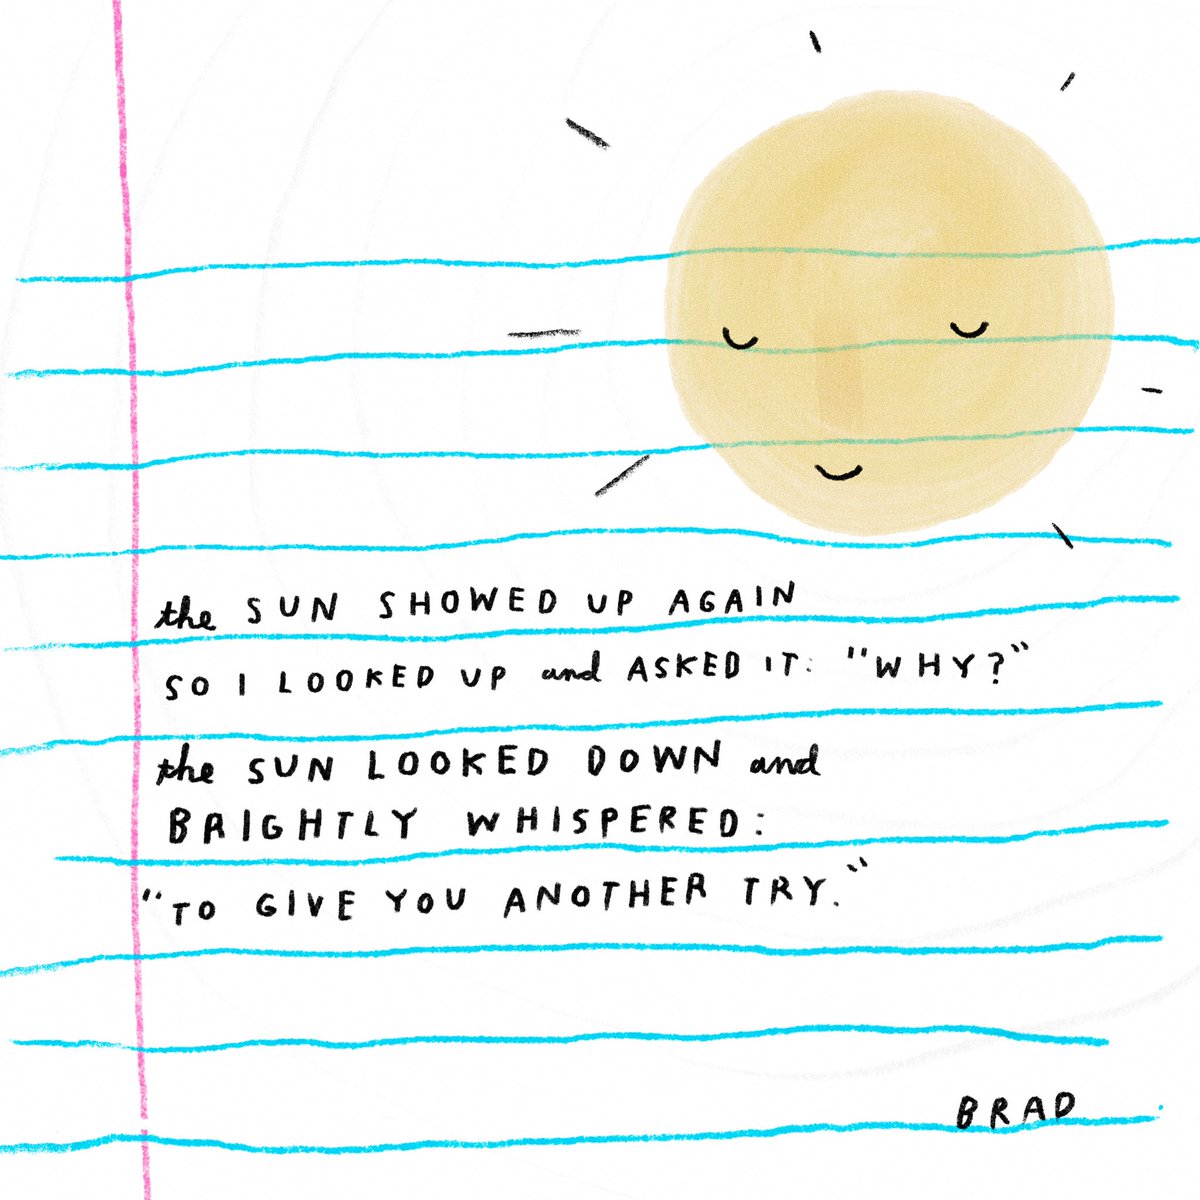 the SUN SHOWED UP AGAIN
SO I LOOKED UP and ASKED IT: "WHY?"
the SUN LOOKED DOWN and
BRIGHTLY WHISPERED:
"TO GIVE YOU ANOTHER TRY."
BRAD